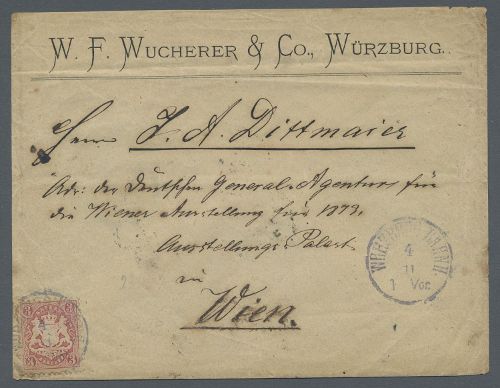 W. F. WUCHERER & CO., WÜRZBURG.
Herrn J. A. Dittmaier
Adr: der Deutschen General-Agentur für
die Wiener Ausstellung 1873.
Ausstellungs-Palast
in
Wien.
4
11
1 Vor.
3
3